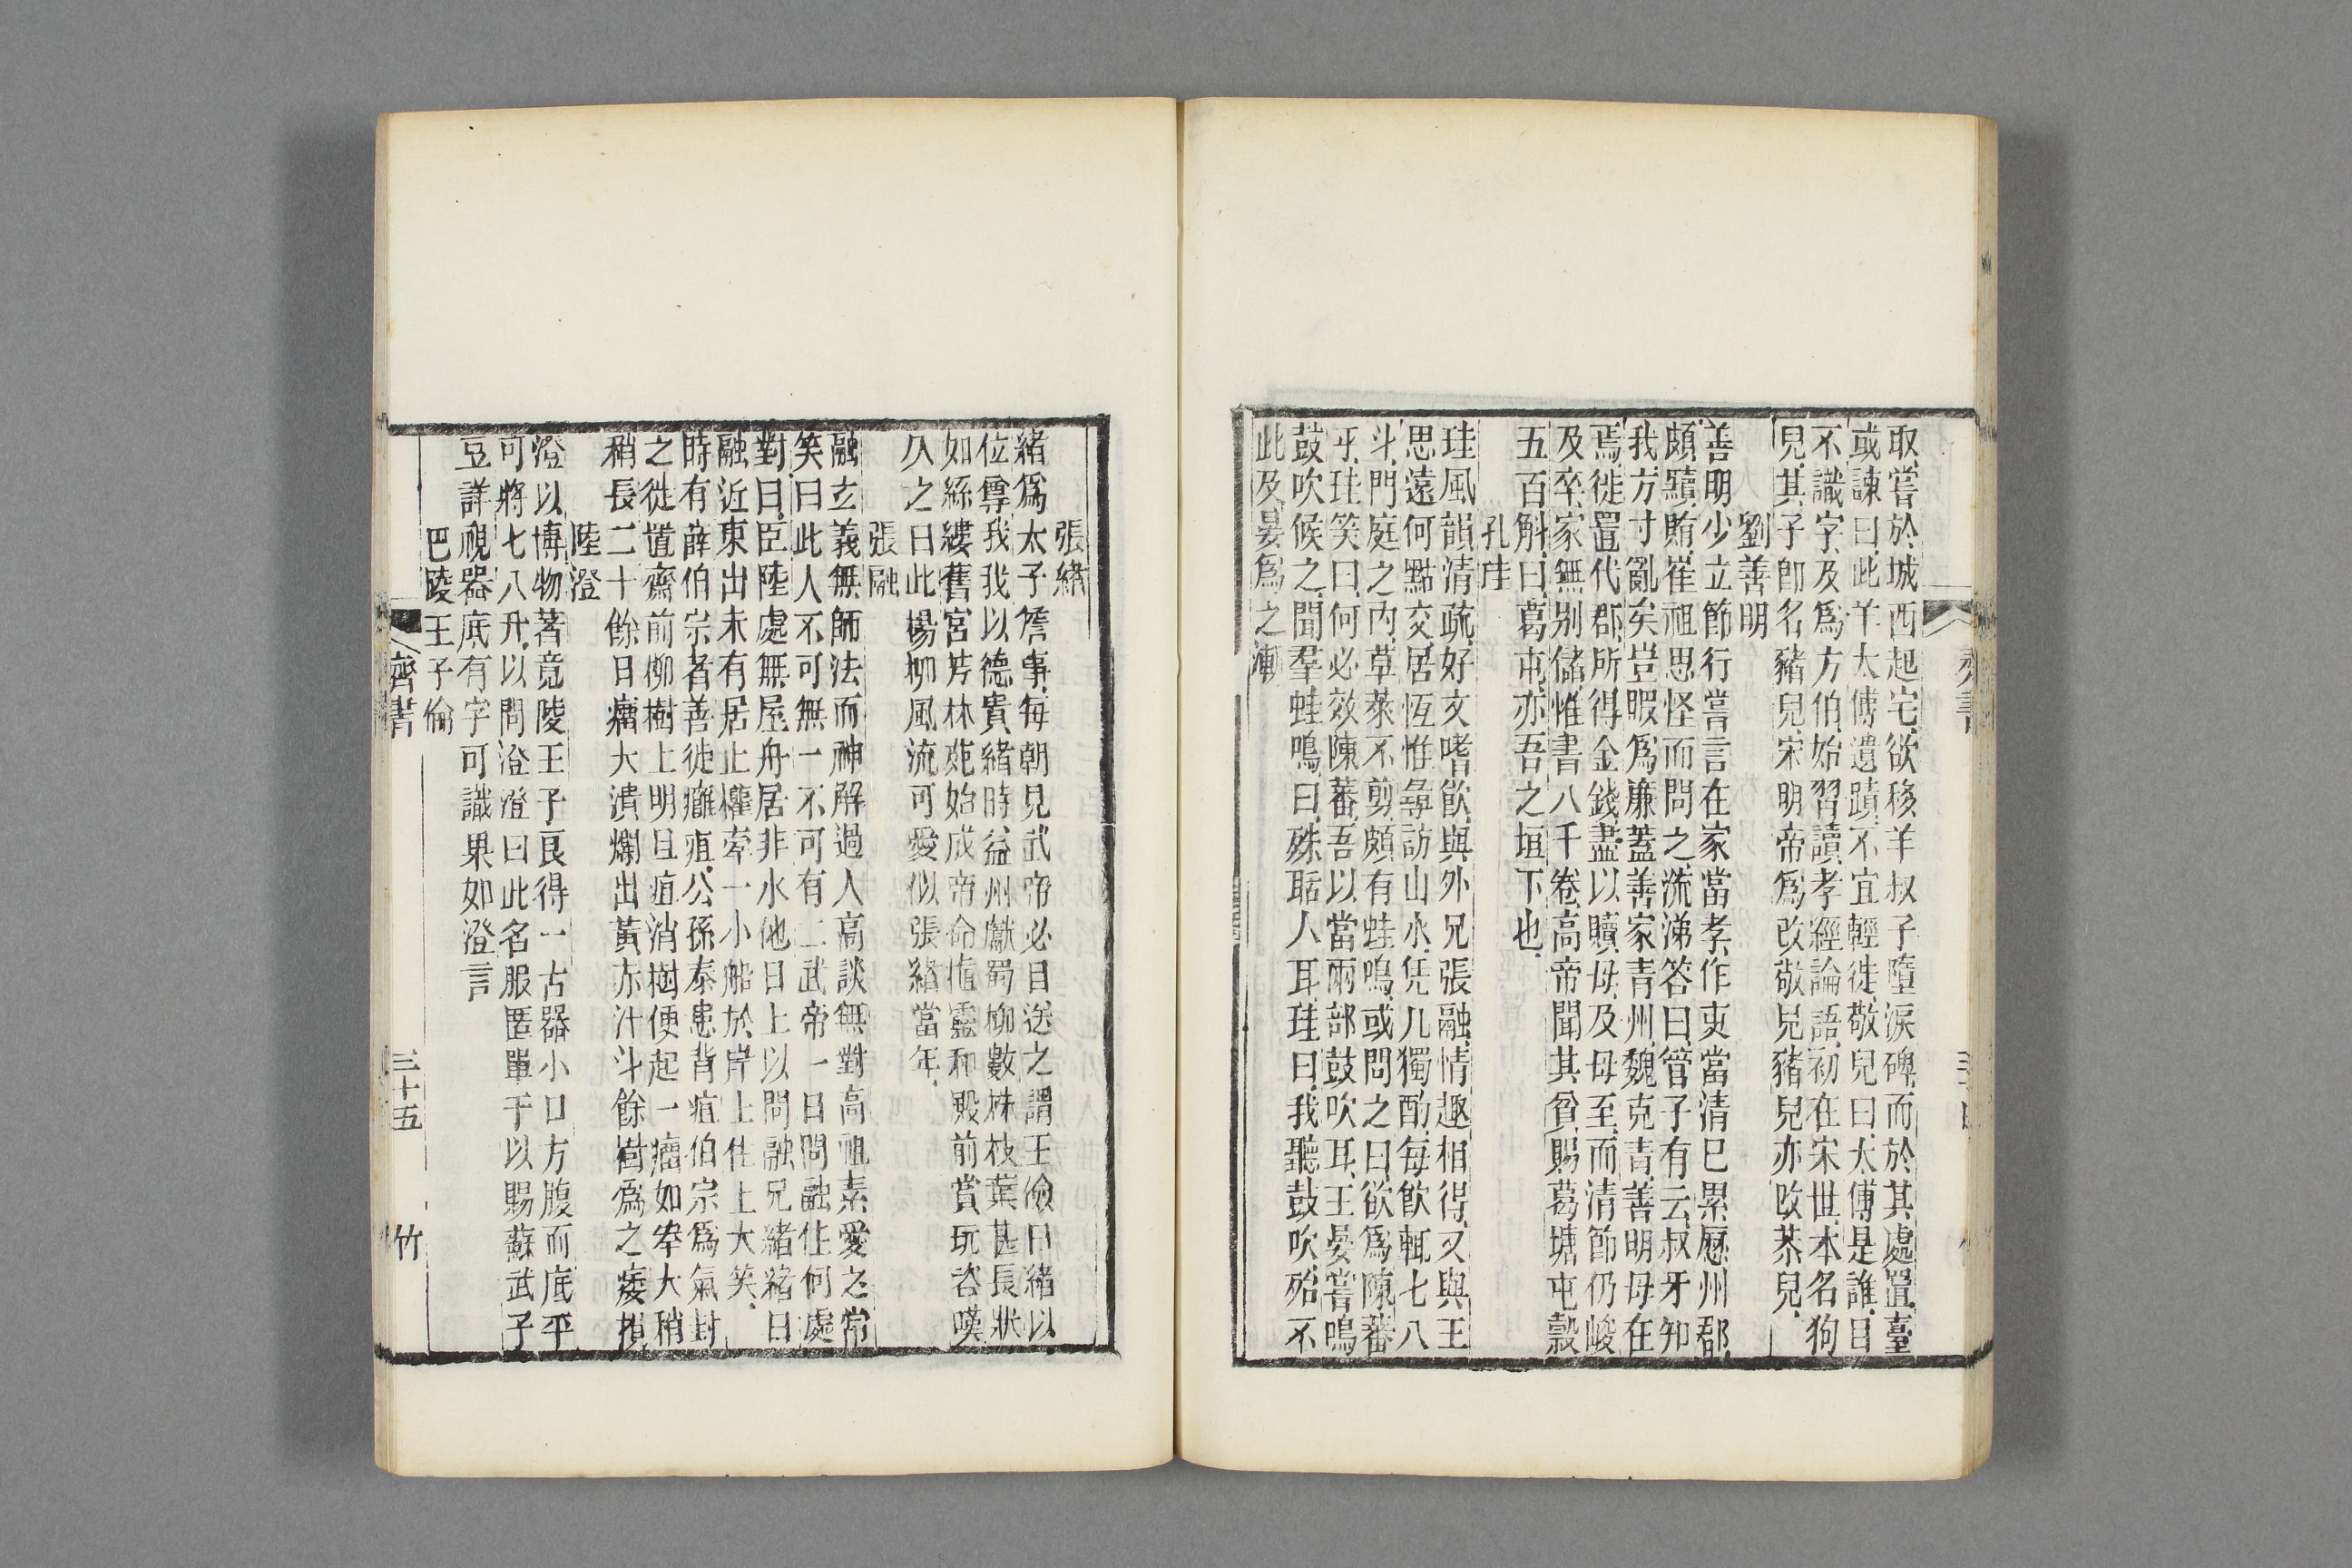 取嘗於城西起宅欲移羊叔子墮淚碑而於其處置臺
或諫曰此羊太傅遺蹟不宜輕徙敬兒曰太傅是誰目
不識字及為方伯始習讀孝經論語初在宋世本名狗
兒其子卽名豬兒宋明帝爲改敬兒豬兒亦改恭兒
劉善明
善明少立節行嘗言在家當孝作吏當清巳累歷州郡
頗黷賄崔祖思怪而問之流涕答曰管子有云叔牙知
我方寸亂矣豈暇爲廉蓋善家青州魏克青善明母在
焉徙置代郡所得金錢盡以贖母及母至而清節仍峻
及卒家無别儲惟書八千卷高帝聞其貧賜葛塘屯穀
五百斛曰葛屯亦吾之垣下也
孔珪
珪風韻清疏好文嗜飮與外兄張融情趣相得又與王
思遠何點交居恆惟尋訪山水凭几獨酌每飮輒七八
斗門庭之内草萊不剪頗有蛙鳴或問之曰欲爲陳蕃
乎珪笑曰何必效陳蕃吾以當兩部鼓吹耳王晏嘗鳴
鼓吹候之聞羣蛙鳴曰殊聒人耳珪曰我聽鼓吹殆不
此及晏爲之慚
張緒
緒爲太子詹事每朝見武帝必目送之謂王儉曰緒以
位尊我我以德貴緒時益州獻蜀柳數株枝葉甚長狀
如絲縷舊宮芳林苑始成帝命植靈和殿前賞玩咨嘆
久之曰此楊柳風流可愛似張緒當年
張融
融玄義無師法而神解過人高談無對高祖素愛之常
笑曰此人不可無一不可有二武帝一日問融住何處
對曰臣陸處無屋舟居非水他日上以問融兄緒緒曰
融近東出未有居止權牽一小船於岸上住上大笑
時有薛伯宗者善徙癰疽公孫泰患背疽伯宗爲氣封
之徙置齋前柳樹上明旦疽消樹便起一瘤如拳大稍
稍長二十餘日瘤大潰爛出黃赤汁斗餘樹爲之痿損
陸澄
澄以博物著竟陵王子良得一古器小口方腹而底平
可將七八升以問澄澄曰此名服匿單于以賜蘇武子
豆詳視器底有字可識果如澄言
巴陵王子倫
齊書
三十五
竹